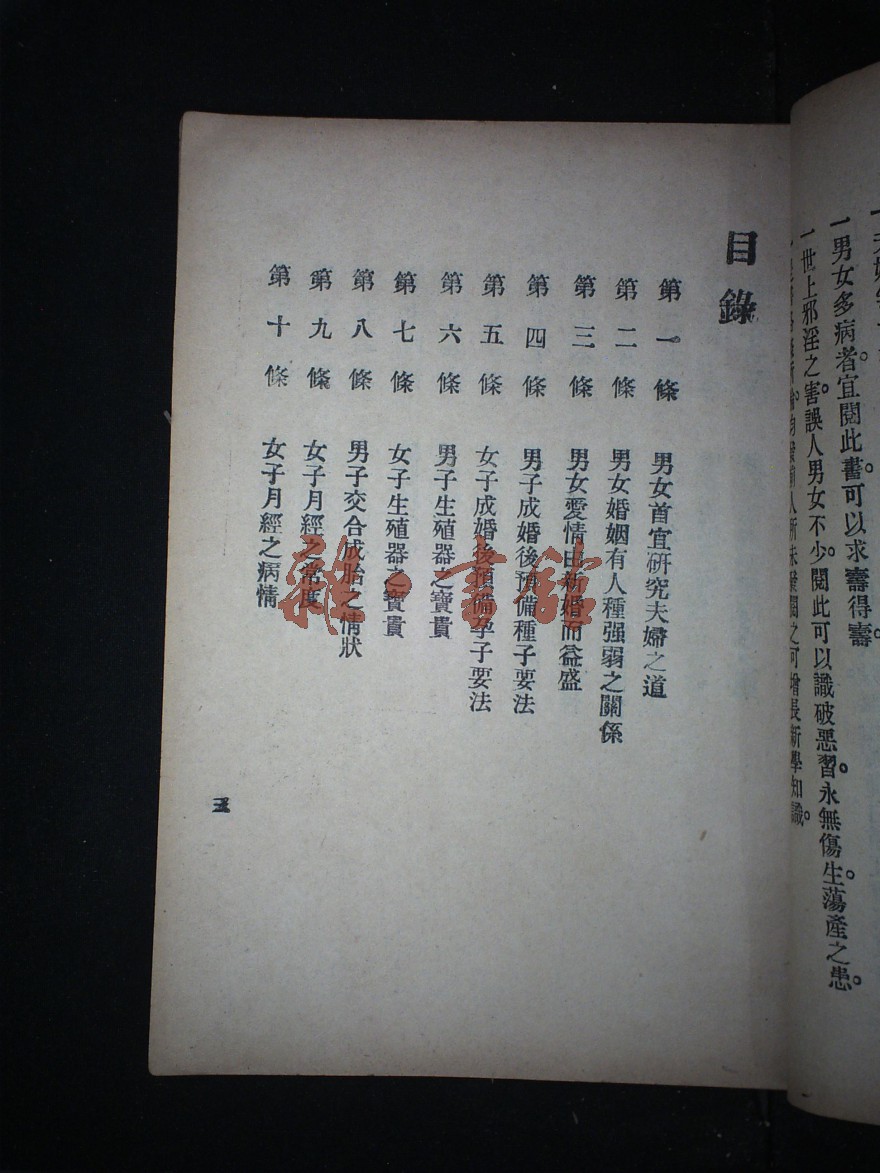 一男女多病者宜閱此書。可以求壽得壽。
一世上邪淫之害。誤人男女不少。閱此可以識破惡習。永無傷生蕩產之患。
人所未發閱之可增長新學知識。
目錄
第一條 男女首宜研究夫婦之道
第二條 男女婚姻有人種强弱之關係
第三條 男女愛情由新婚而益盛
第四條 男子成婚後預備種子要法
第五條 女子成婚後預備孕子要法
第六條 男子生殖器之寶貴
第七條 女子生殖器之寶貴
第八條 男子交合成胎之情狀
第九條 女子月經之常度
第十條 女子月經之病情
三
雜書館